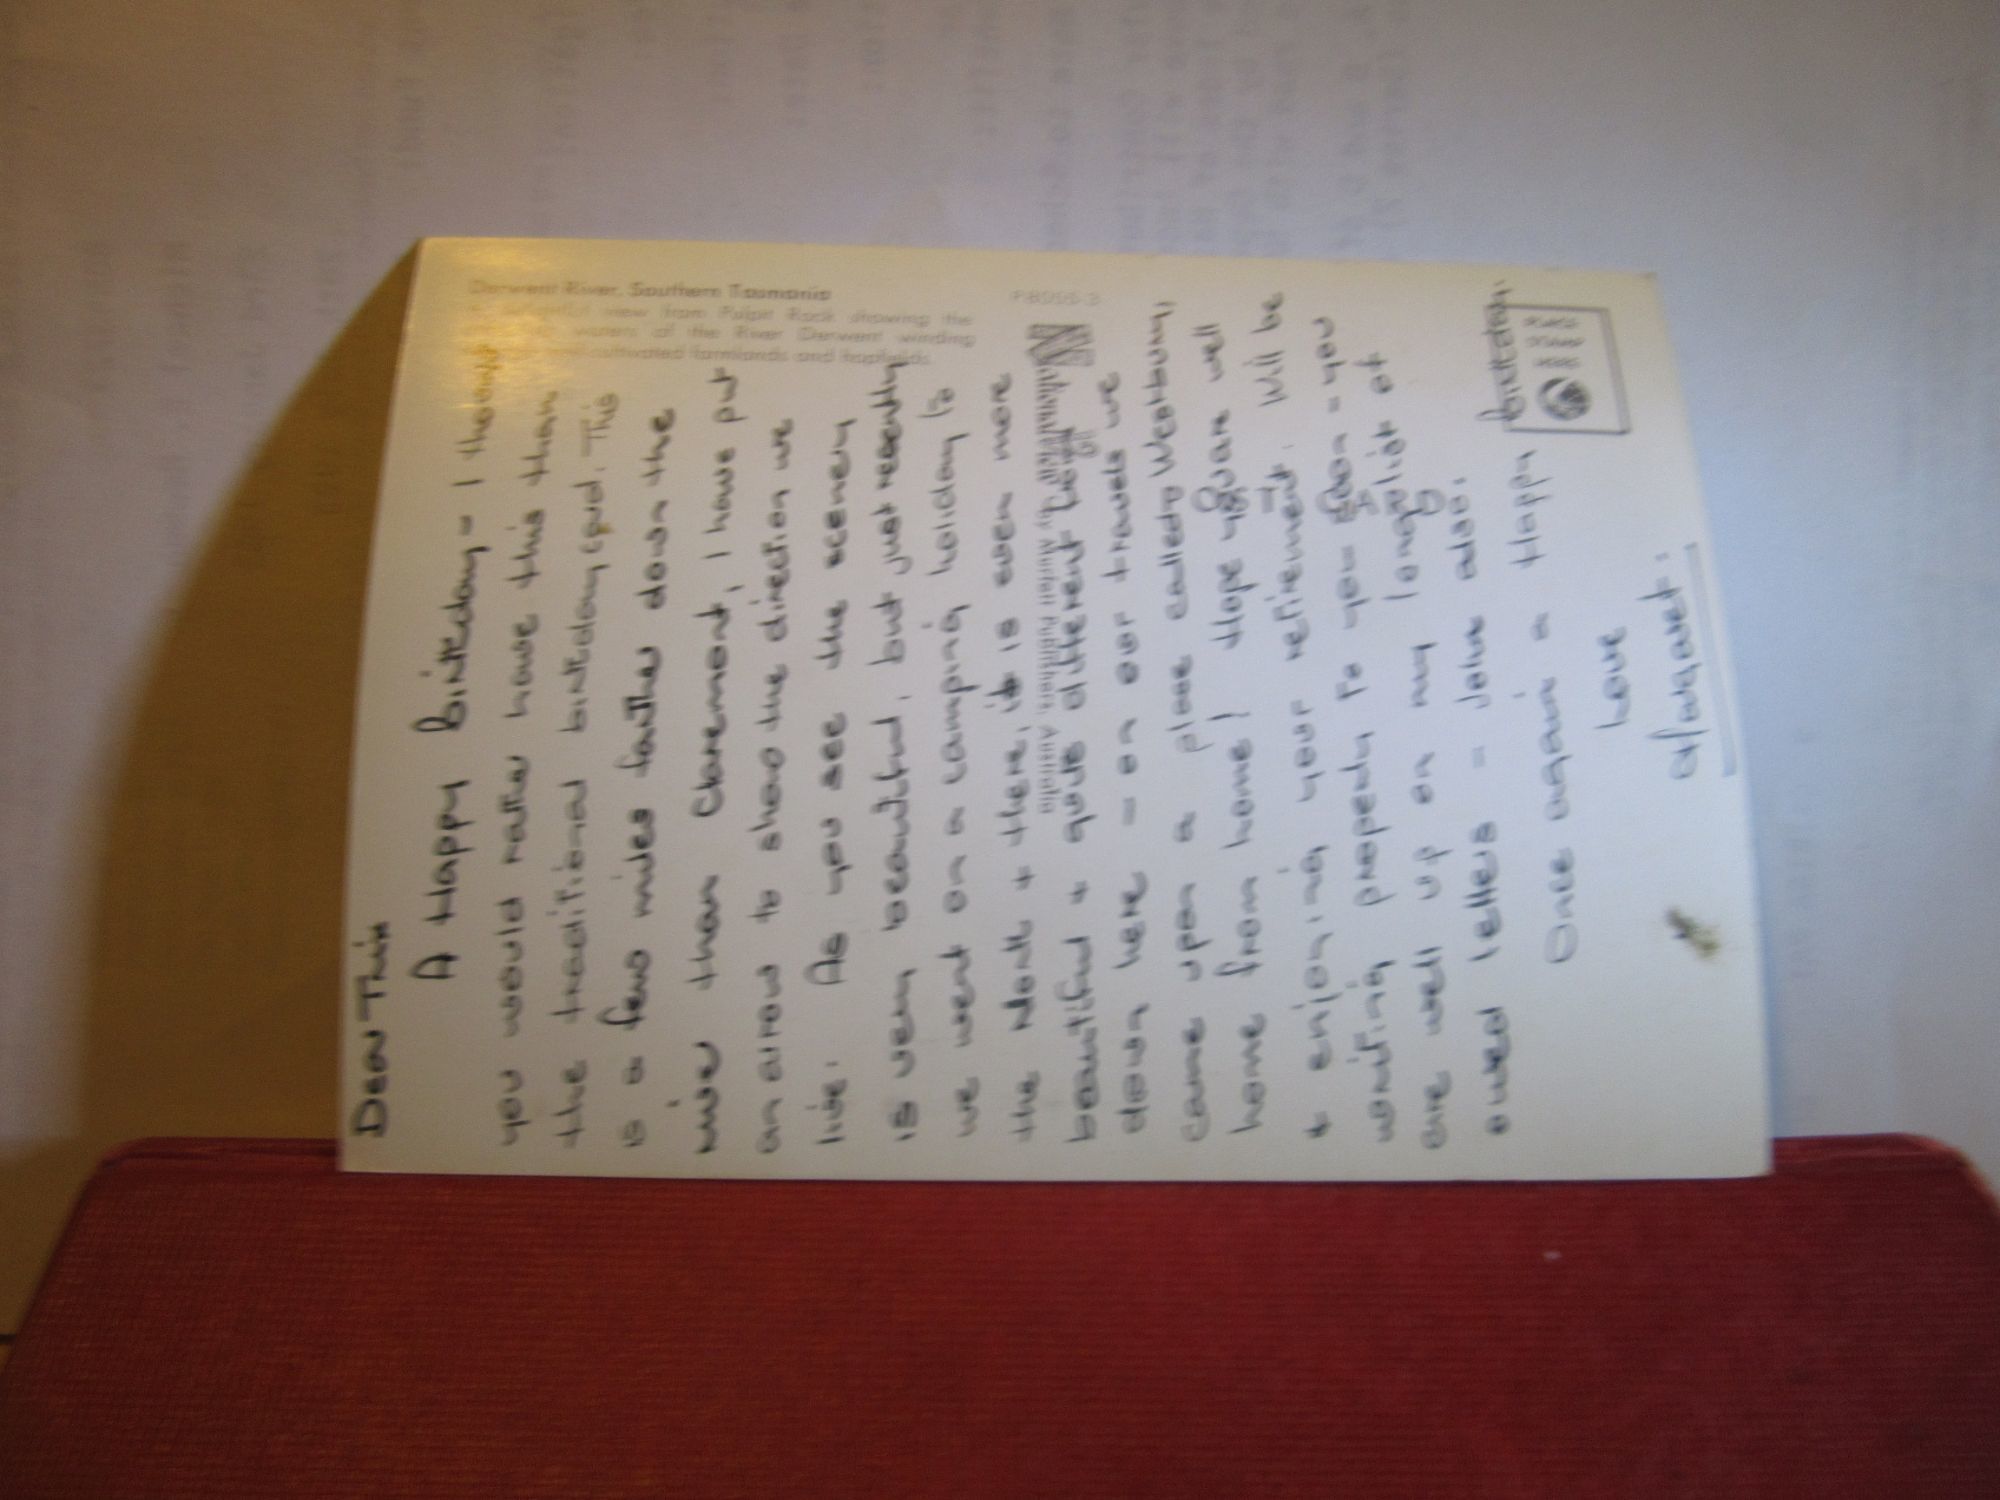 Dear Thir
A Happy Birthday - I thought
you would rather have this than
the traditional birthday card. This
is a few miles further down the
river than Claremont, I have put
an arrow to show the direction we
live. As you see the scenery
is very beautiful, but just recently
we went on a camping holiday to
the North & there, it is even more
beautiful & quite different to
down here - on our travels we
came upon a place called Westbury,
home from home! Hope you are well
& enjoying your retirement. Will be
writing properly to you soon - you
are well up on my long list of
owed letters - John also.
Once again a Happy Birthday.
Love
Margaret.
Derwent River, Southern Tasmania
view from Pulpit Rock showing the
waters of the River Derwent winding
cultivated farmlands and hopfields.
by Murfett Publishers, Australia
PLACE
STAMP
HERE